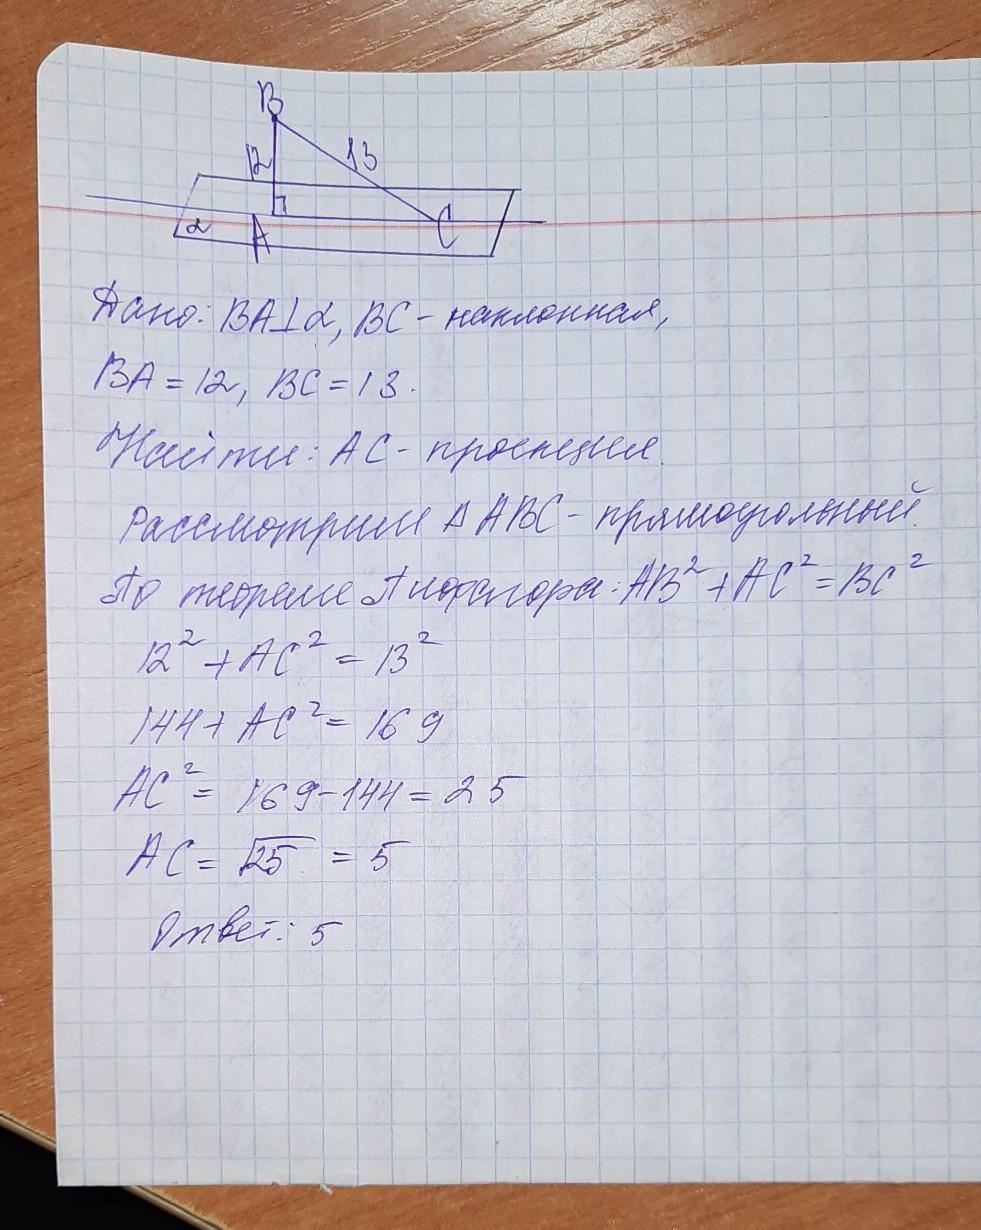 B
12
13
α
A
C
Дано: BA⊥α, BC - наклонная,
BA = 12, BC = 13.
Найти: AC - проекция.
Рассмотрим Δ ABC - прямоугольный.
По теореме Пифагора: AB² + AC² = BC²
12² + AC² = 13²
144 + AC² = 169
AC² = 169 - 144 = 25
AC = √25 = 5
Ответ: 5